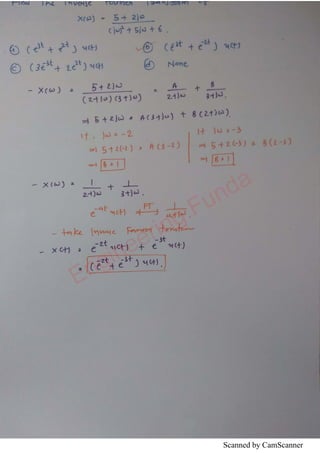 Find The Inverse Fourier Transform of
X(ω) = 5 + 2jω / (jω)² + 5jω + 6 .
a (e^3t + e^2t) u(t) b (e^-3t + e^-2t) u(t)
c (3e^3t + 2e^2t) u(t) d None
- X(ω) = 5 + 2jω / (2+jω) (3+jω) = A / 2+jω + B / 3+jω .
⇒ 5 + 2jω = A (3+jω) + B (2+jω) .
If, jω = -2 If jω = -3
⇒ 5 + 2(-2) = A (3-2) ⇒ 5 + 2(-3) = B(2-3)
⇒ B = 1 ⇒ B = 1
- X(ω) = 1 / 2+jω + 1 / 3+jω .
e^-at u(t) FT 1 / a+jω
- take Inverse Fourier Transform
- x(t) = e^-2t u(t) + e^-3t u(t)
= (e^-2t + e^-3t) u(t) .
Engineering Funda
Scanned by CamScanner